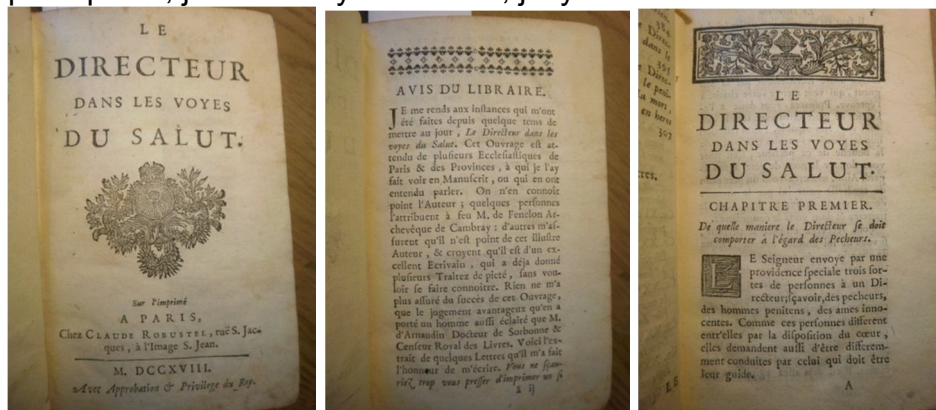 LE
DIRECTEUR
DANS LES VOYES
DU SALUT.
Sur l'imprimé
A PARIS,
Chez CLAUDE ROBUSTEL, ruë S. Jac-
ques, à l'Image S. Jean.
M. DCCXVIII.
Avec Approbation & Privilege du Roy.
AVIS DU LIBRAIRE.
JE me rends aux instances qui m'ont
été faites depuis quelque tems de
mettre au jour, Le Directeur dans les
voyes du Salut. Cet Ouvrage est at-
tendu de plusieurs Ecclesiastiques de
Paris & des Provinces, à qui je l'ay
fait voir en Manuscrit, ou qui en ont
entendu parler. On n'en connoît
point l'Auteur; quelques personnes
l'attribuent à feu M. de Fenelon Ar-
chevêque de Cambray: d'autres m'as-
surent qu'il n'est point de cet illustre
Auteur, & croyent qu'il est d'un ex-
cellent Ecrivain, qui a déja donné
plusieurs Traitez de pieté, sans vou-
loir se faire connoître. Rien ne m'a
plus assuré du succès de cet Ouvrage,
que le jugement avantageux qu'en a
porté un homme aussi éclairé que M.
d'Arnaudin Docteur de Sorbonne &
Censeur Royal des Livres. Voici l'ex-
trait de quelques Lettres qu'il m'a fait
l'honneur de m'écrire. Vous ne sçau-
riez trop vous presser d'imprimer un si
ã ij
LE
DIRECTEUR
DANS LES VOYES
DU SALUT.
CHAPITRE PREMIER.
De quelle maniere le Directeur se doit
comporter à l'égard des Pecheurs.
LE Seigneur envoye par une
providence speciale trois sor-
tes de personnes à un Di-
recteur; sçavoir, des pecheurs,
des hommes penitens, des ames inno-
centes. Comme ces personnes different
entr'elles par la disposition du cœur,
elles demandent aussi d'être differem-
ment conduites par celui qui doit être
leur guide.
A